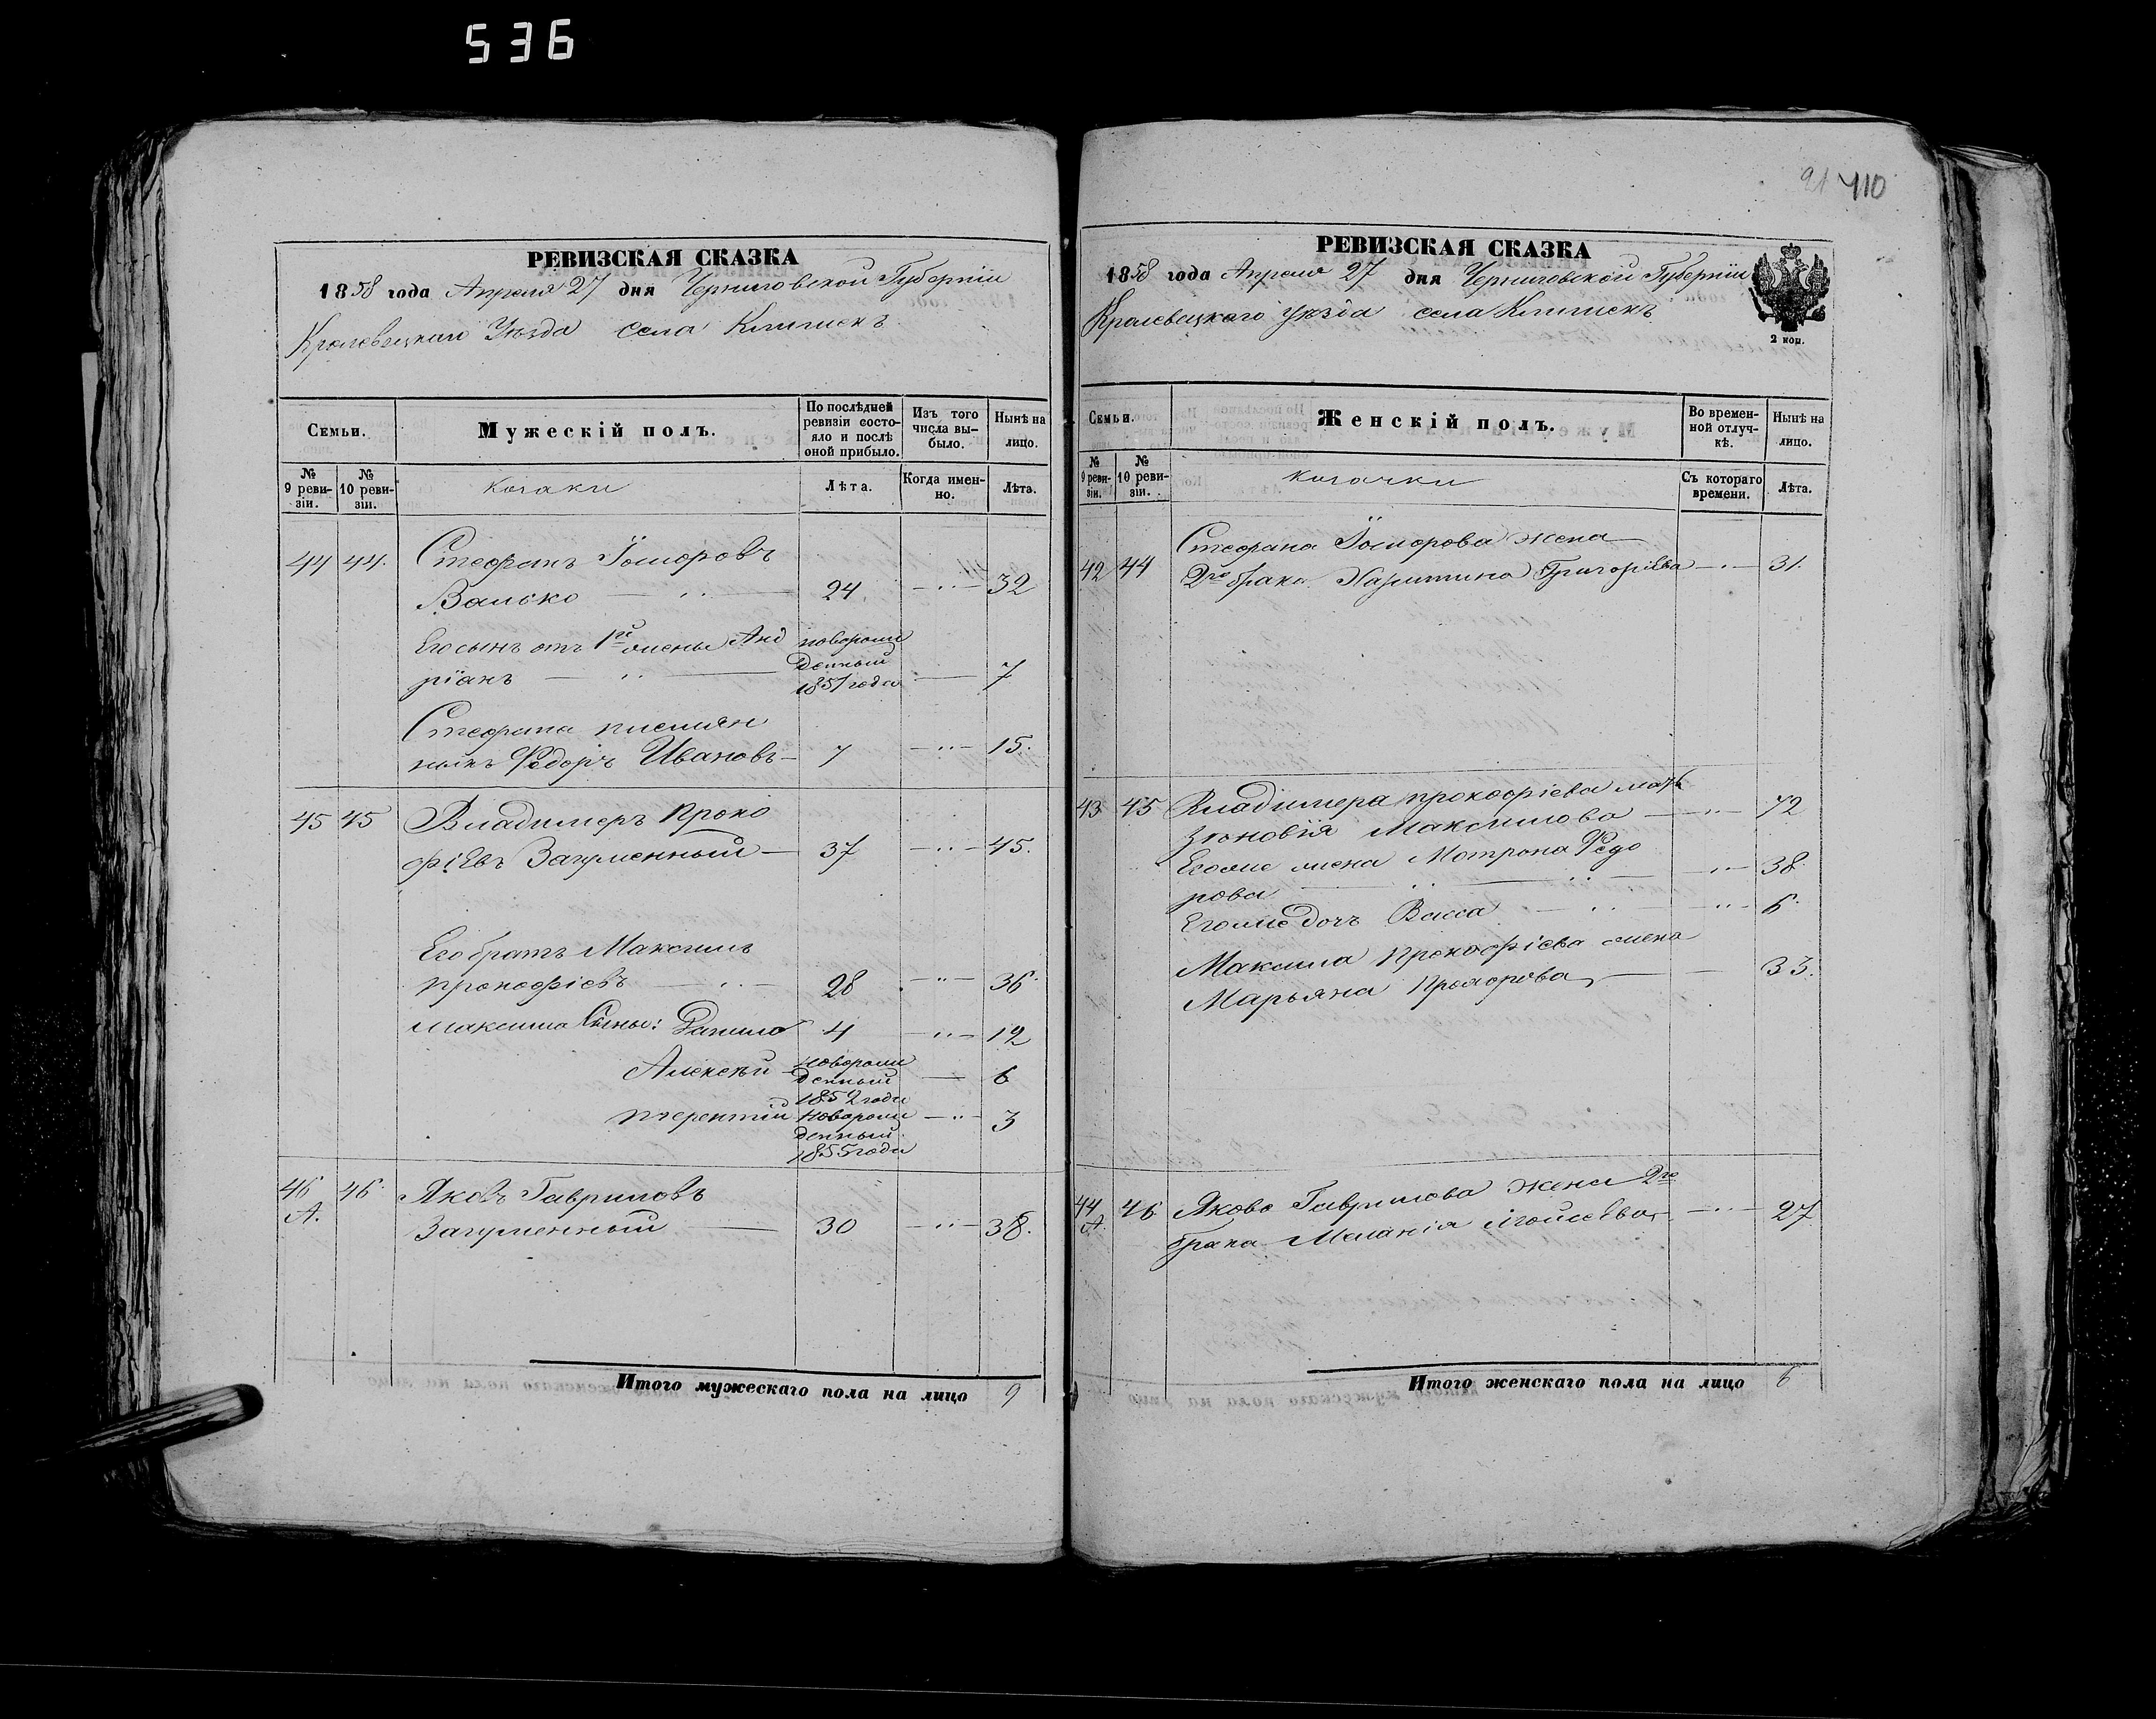 536
РЕВИЗСКАЯ СКАЗКА
1858 года Апреля 27 дня Черниговской Губерніи
Кролевецкаго Уѣзда села Клишекъ
Семьи.
Мужескій полъ.
По послѣдней ревизіи состояло и послѣ оной прибыло.
Изъ того числа выбыло.
Нынѣ на лицо.
№ 9 ревизіи.
№ 10 ревизіи.
козаки
Лѣта.
Когда именно.
Лѣта.
44 44. Стефанъ
Валько 24 32
Его сынъ отъ 1й жены Анд новорож
ріанъ денный 1851 года 7
Стефана племян
никъ Федоръ Ивановъ 7 15.
45 45 Владимеръ Проко
фіевъ Загуменный 37 45.
Его братъ Максимъ
Прокофіевъ 28 36.
Максима Сыны: Данило 4 12
Алексѣй новорожденный 1852 года 6
Терентій новорожденный 1855 года 3
46 А. 46. Яковъ Гавриловъ
Загуменный 30 38.
Итого мужескаго пола на лицо 9
21 410
РЕВИЗСКАЯ СКАЗКА
1858 года Апреля 27 дня Черниговской Губерніи
Кролевецкаго уѣзда села Клишекъ
2 коп.
Семьи.
Женскій полъ.
Во временной отлучкѣ.
Нынѣ на лицо.
№ 9 ревизіи.
№ 10 ревизіи.
козачки
Съ котораго времени.
Лѣта.
Стефана жена
42 44 2го брака Харитина Григорьева 31.
43 45 Владимера Прокофіева мать
Зѣновія Максимова 72
Егоже жена Мотрона Федо
рова 38
Егоже дочь Васса 6.
Максима Прокофіева жена
Марьяна 33.
44 А. 46 Якова Гаврилова жена 2го
брака Меланія Мойсеева 27
Итого женскаго пола на лицо 6